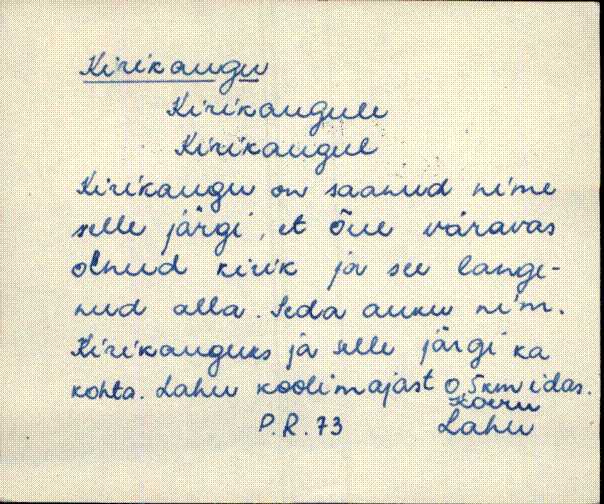 Kirikaugu
Kirikaugule
Kirikaugul
Kirikaugu on saanud nime
selle järgi, et õue väravas
olnud kirik ja see lange-
nud alla. Seda auku nim.
Kirikauguks ja selle järgi ka
kohta. Lahu koolimajast 0,5km idas.
Koeru
P.R. 73 Lahu